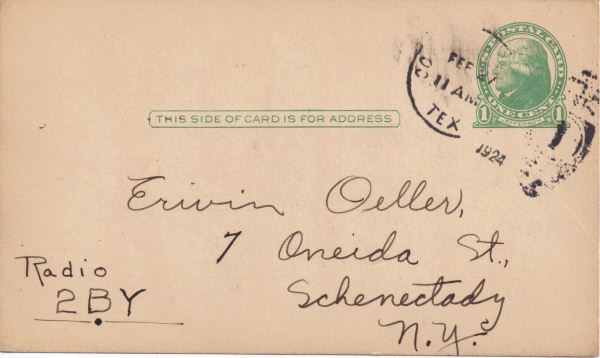 U.S. POSTAL CARD
1 ONE CENT 1
JEFFERSON
FEB
11 AM
TEX
1924
THIS SIDE OF CARD IS FOR ADDRESS
Erivin Oeller,
7 Oneida St.,
Schenectady
N.Y.
Radio
2BY